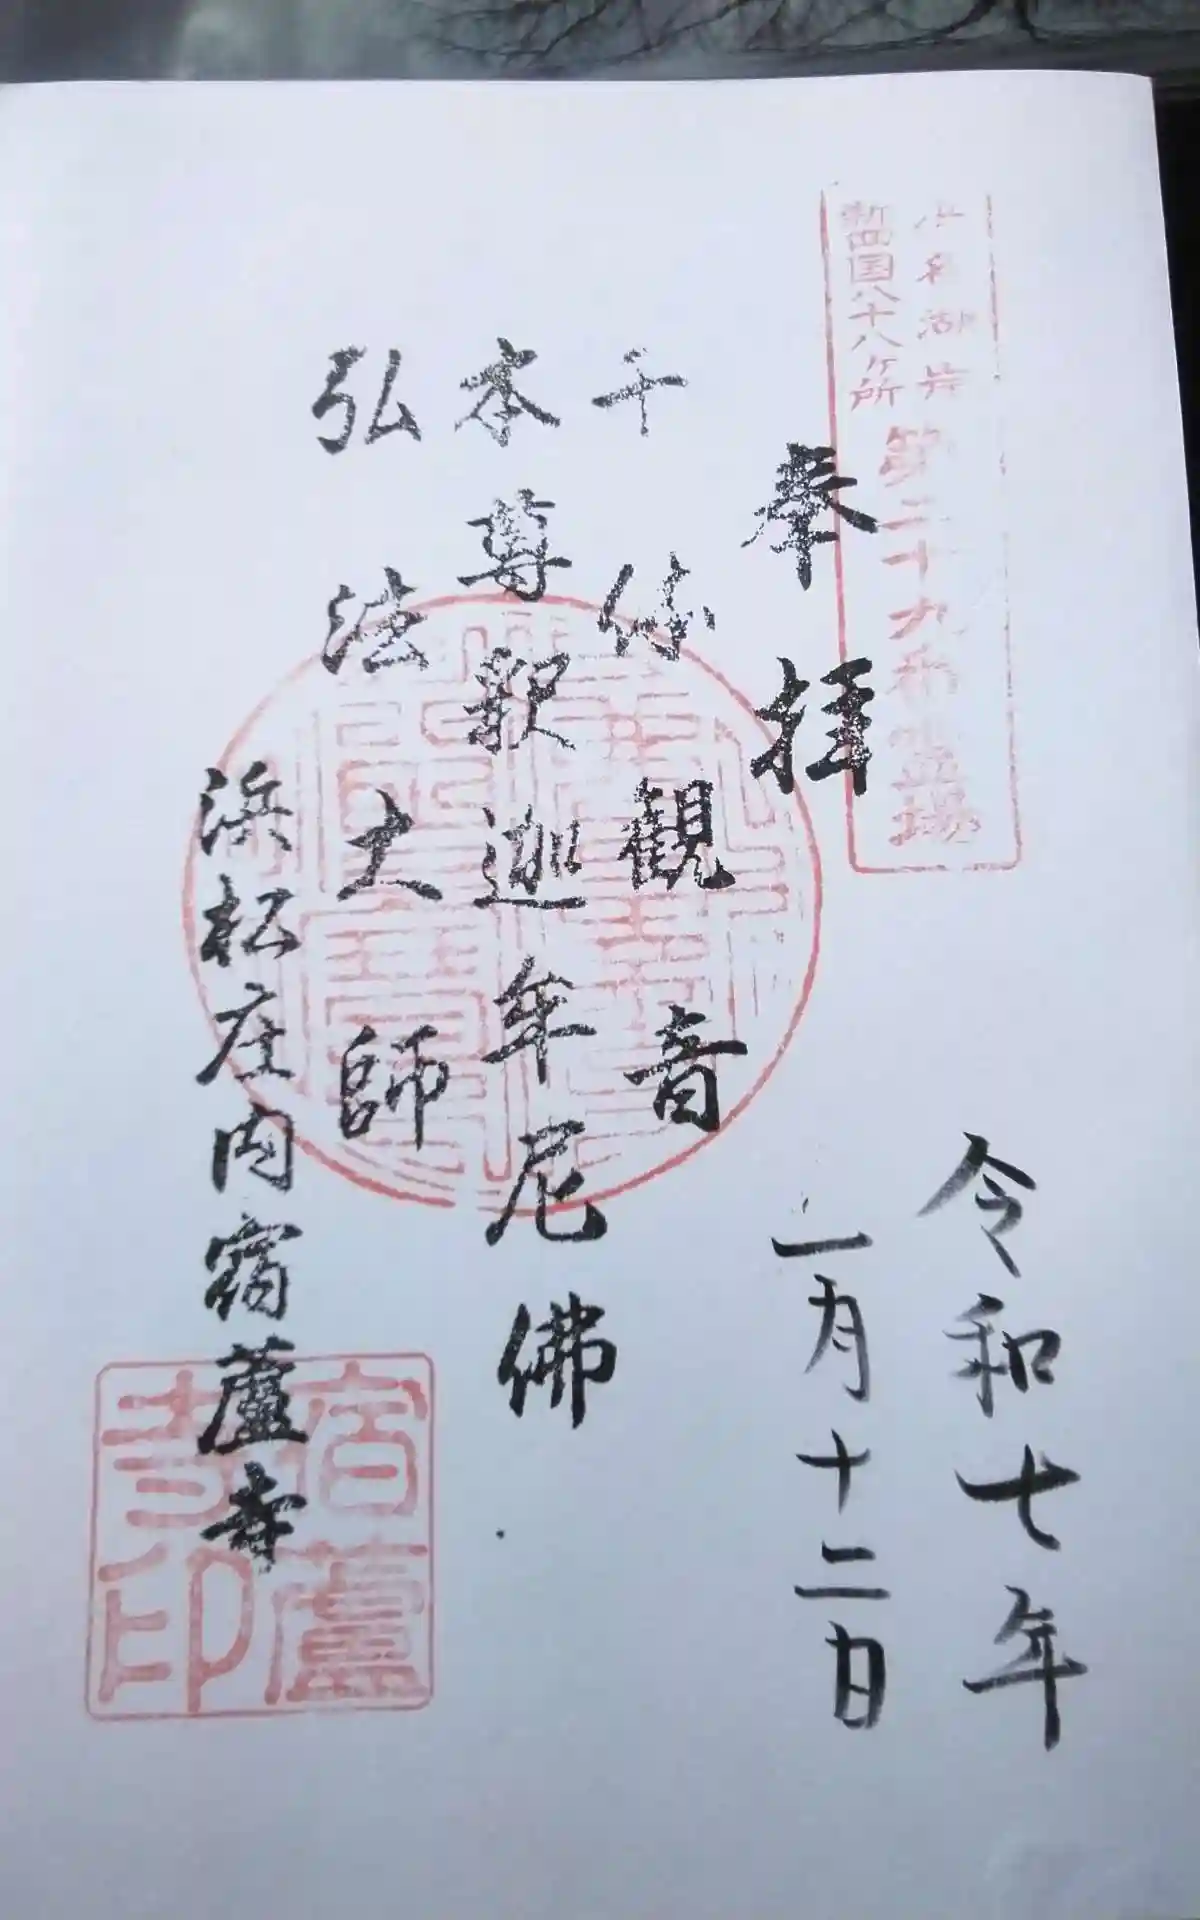 浜名湖岸
新四国八十八ヶ所
第二十九番霊場
奉拝
令和七年
二月十二日
千体観音
本尊釈迦牟尼佛
弘法大師
浜松庄内宿蘆寺
宿蘆
寺印